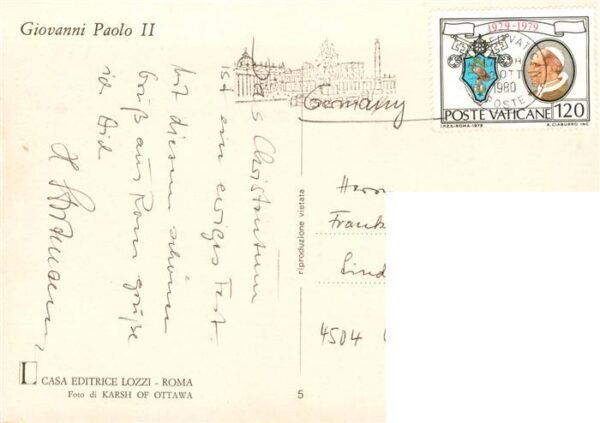 Giovanni Paolo II
Das Christentum
ist ein ewiges Fest.
Mit diesem schönen
Gruß aus Rom grüße
ich Dich
Germany
1929-1979
1980
POSTE VATICANE 120
I.P.Z.S.-ROMA-1979
A. CIABURRO INC.
riproduzione vietata
Herrn
Frank
Lind
4504
CASA EDITRICE LOZZI - ROMA
Foto di KARSH OF OTTAWA
5